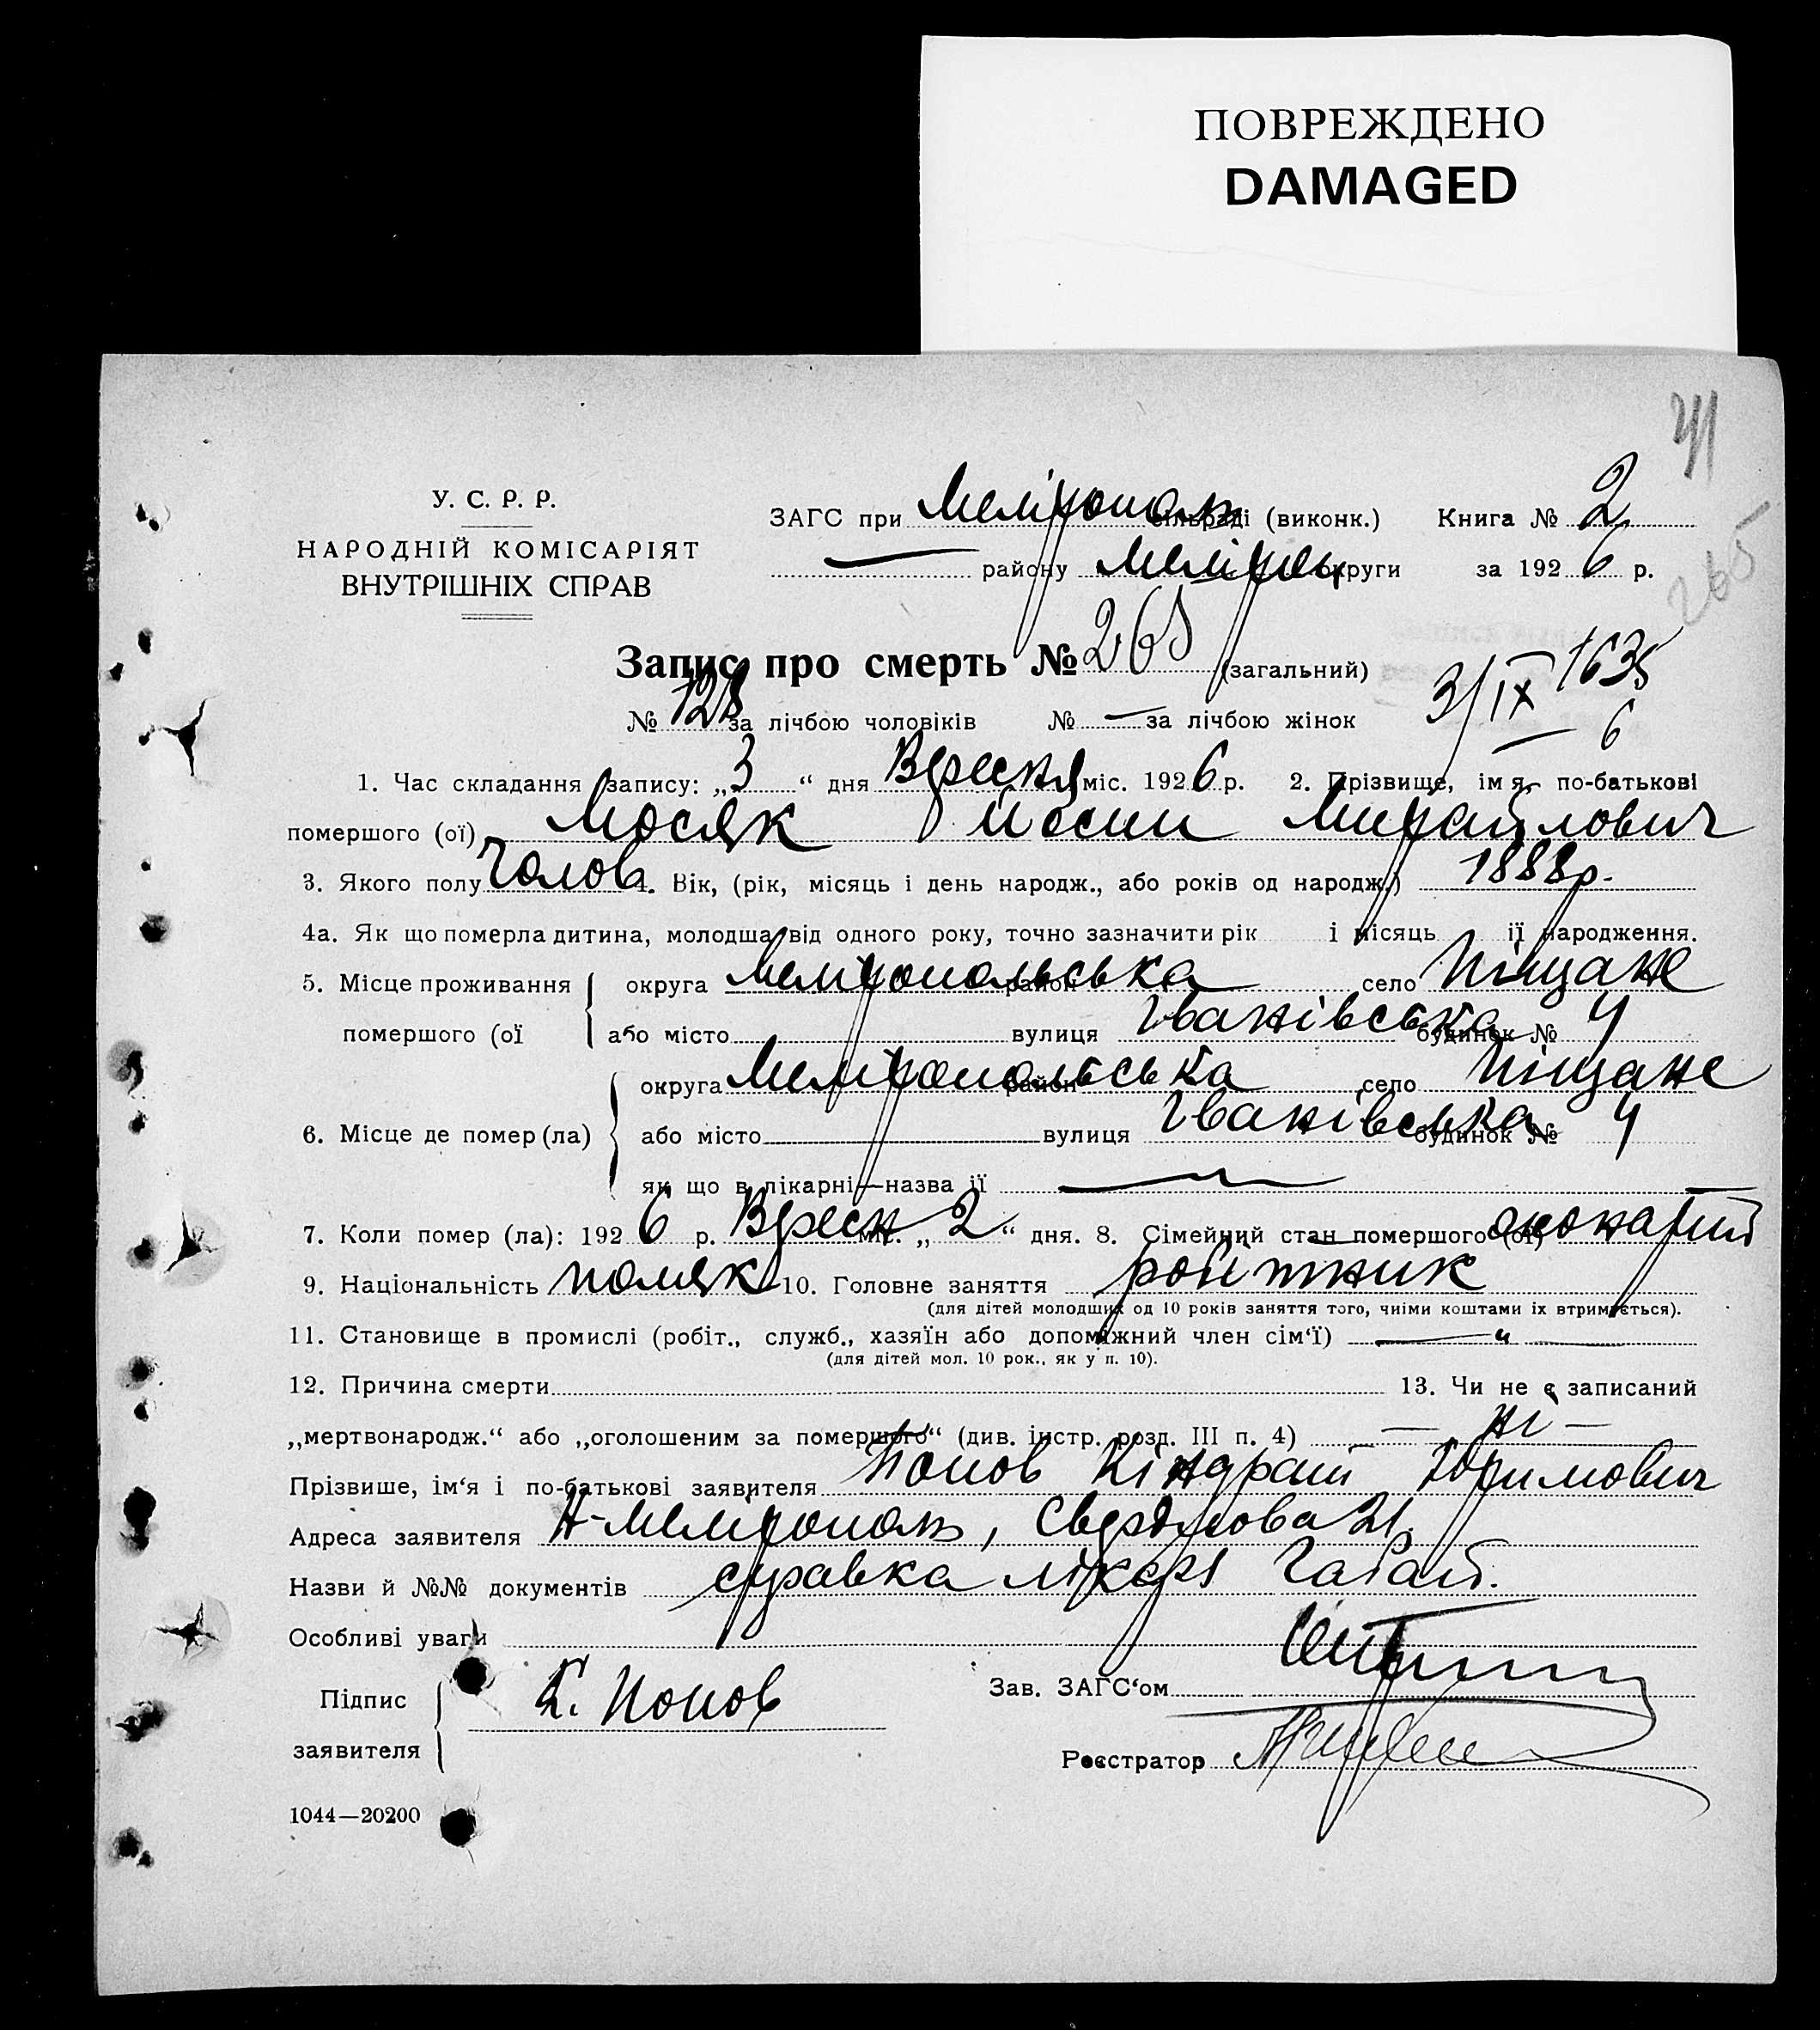 ПОВРЕЖДЕНО
DAMAGED
У. С. Р. Р.
НАРОДНІЙ КОМІСАРІЯТ
ВНУТРІШНІХ СПРАВ
41
ЗАГС при Мелітополь сільраді (виконк.) Книга № 2
— району Мелітоп округи за 1926 р.
265
Запис про смерть № 265 (загальний)
№ 128 за лічбою чоловіків № — за лічбою жінок
3/IX 1635
6
1. Час складання запису: „3“ дня Вересня міс. 1926 р. 2. Прізвище, імя, по-батькові
помершого (ої) Мосяк Йосип Михайлович
3. Якого полу Чолов 4. Вік, (рік, місяць і день народж., або років од народж.) 1888р.
4а. Як що померла дитина, молодша від одного року, точно зазначити рік і місяць її народження.
5. Місце проживання округа Мелітопольська район село Піщане
помершого (ої або місто вулиця Іванівська будинок № 4
округа Мелітопольська район село Піщане
6. Місце де помер (ла) або місто вулиця Іванівська будинок № 4
як що в лікарні—назва її —
7. Коли помер (ла): 1926 р. Вересн міс. „2“ дня. 8. Сімейний стан помершого (ої)
9. Національність поляк 10. Головне заняття робітник
(для дітей молодших од 10 років заняття того, чиїми коштами їх втримується).
11. Становище в промислі (робіт., служб., хазяїн або допоміжний член сім‘ї) — „ —
(для дітей мол. 10 рок., як у п. 10).
12. Причина смерти 13. Чи не є записаний
„мертвонародж.“ або „оголошеним за помершого“ (див. інстр. розд. III п. 4) — ні —
Прізвише, ім‘я і по-батькові заявителя Попов Кіндрат
Адреса заявителя Н-Мелітополь, Свердлова 21.
Назви й №№ документів справка лікаря
Особливі уваги
Підпис
заявителя К. Попов
Зав. ЗАГС‘ом
Реєстратор
1044—20200